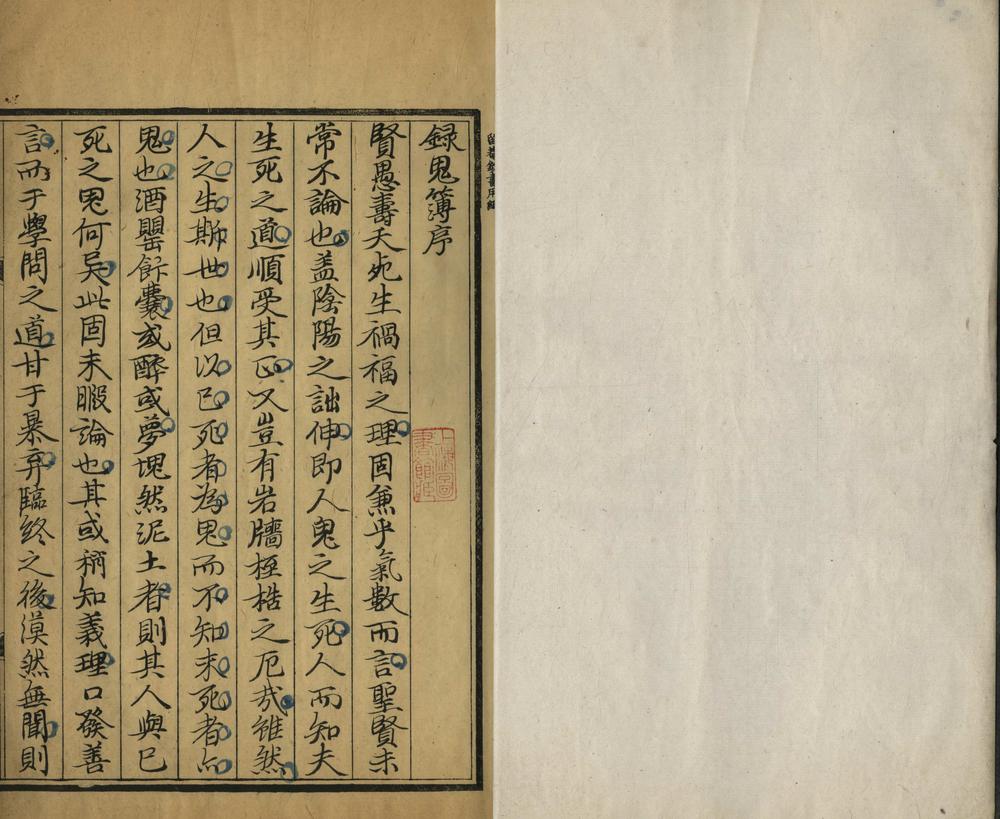 録鬼簿序
賢愚壽夭死生禍福之理固兼乎氣數而言聖賢未
常不論也盖陰陽之詘伸即人鬼之生死人而知夫
生死之道順受其正又豈有岩牆桎梏之厄㢤雖然
人之生斯世也但以已死者為鬼而不知未死者亦
鬼也酒罌飰囊或醉或夢塊然泥土者則其人與已
死之鬼何异此固未暇論也其或稍知義理口發善
言而于學問之道甘于暴弃臨終之後漠然無聞則